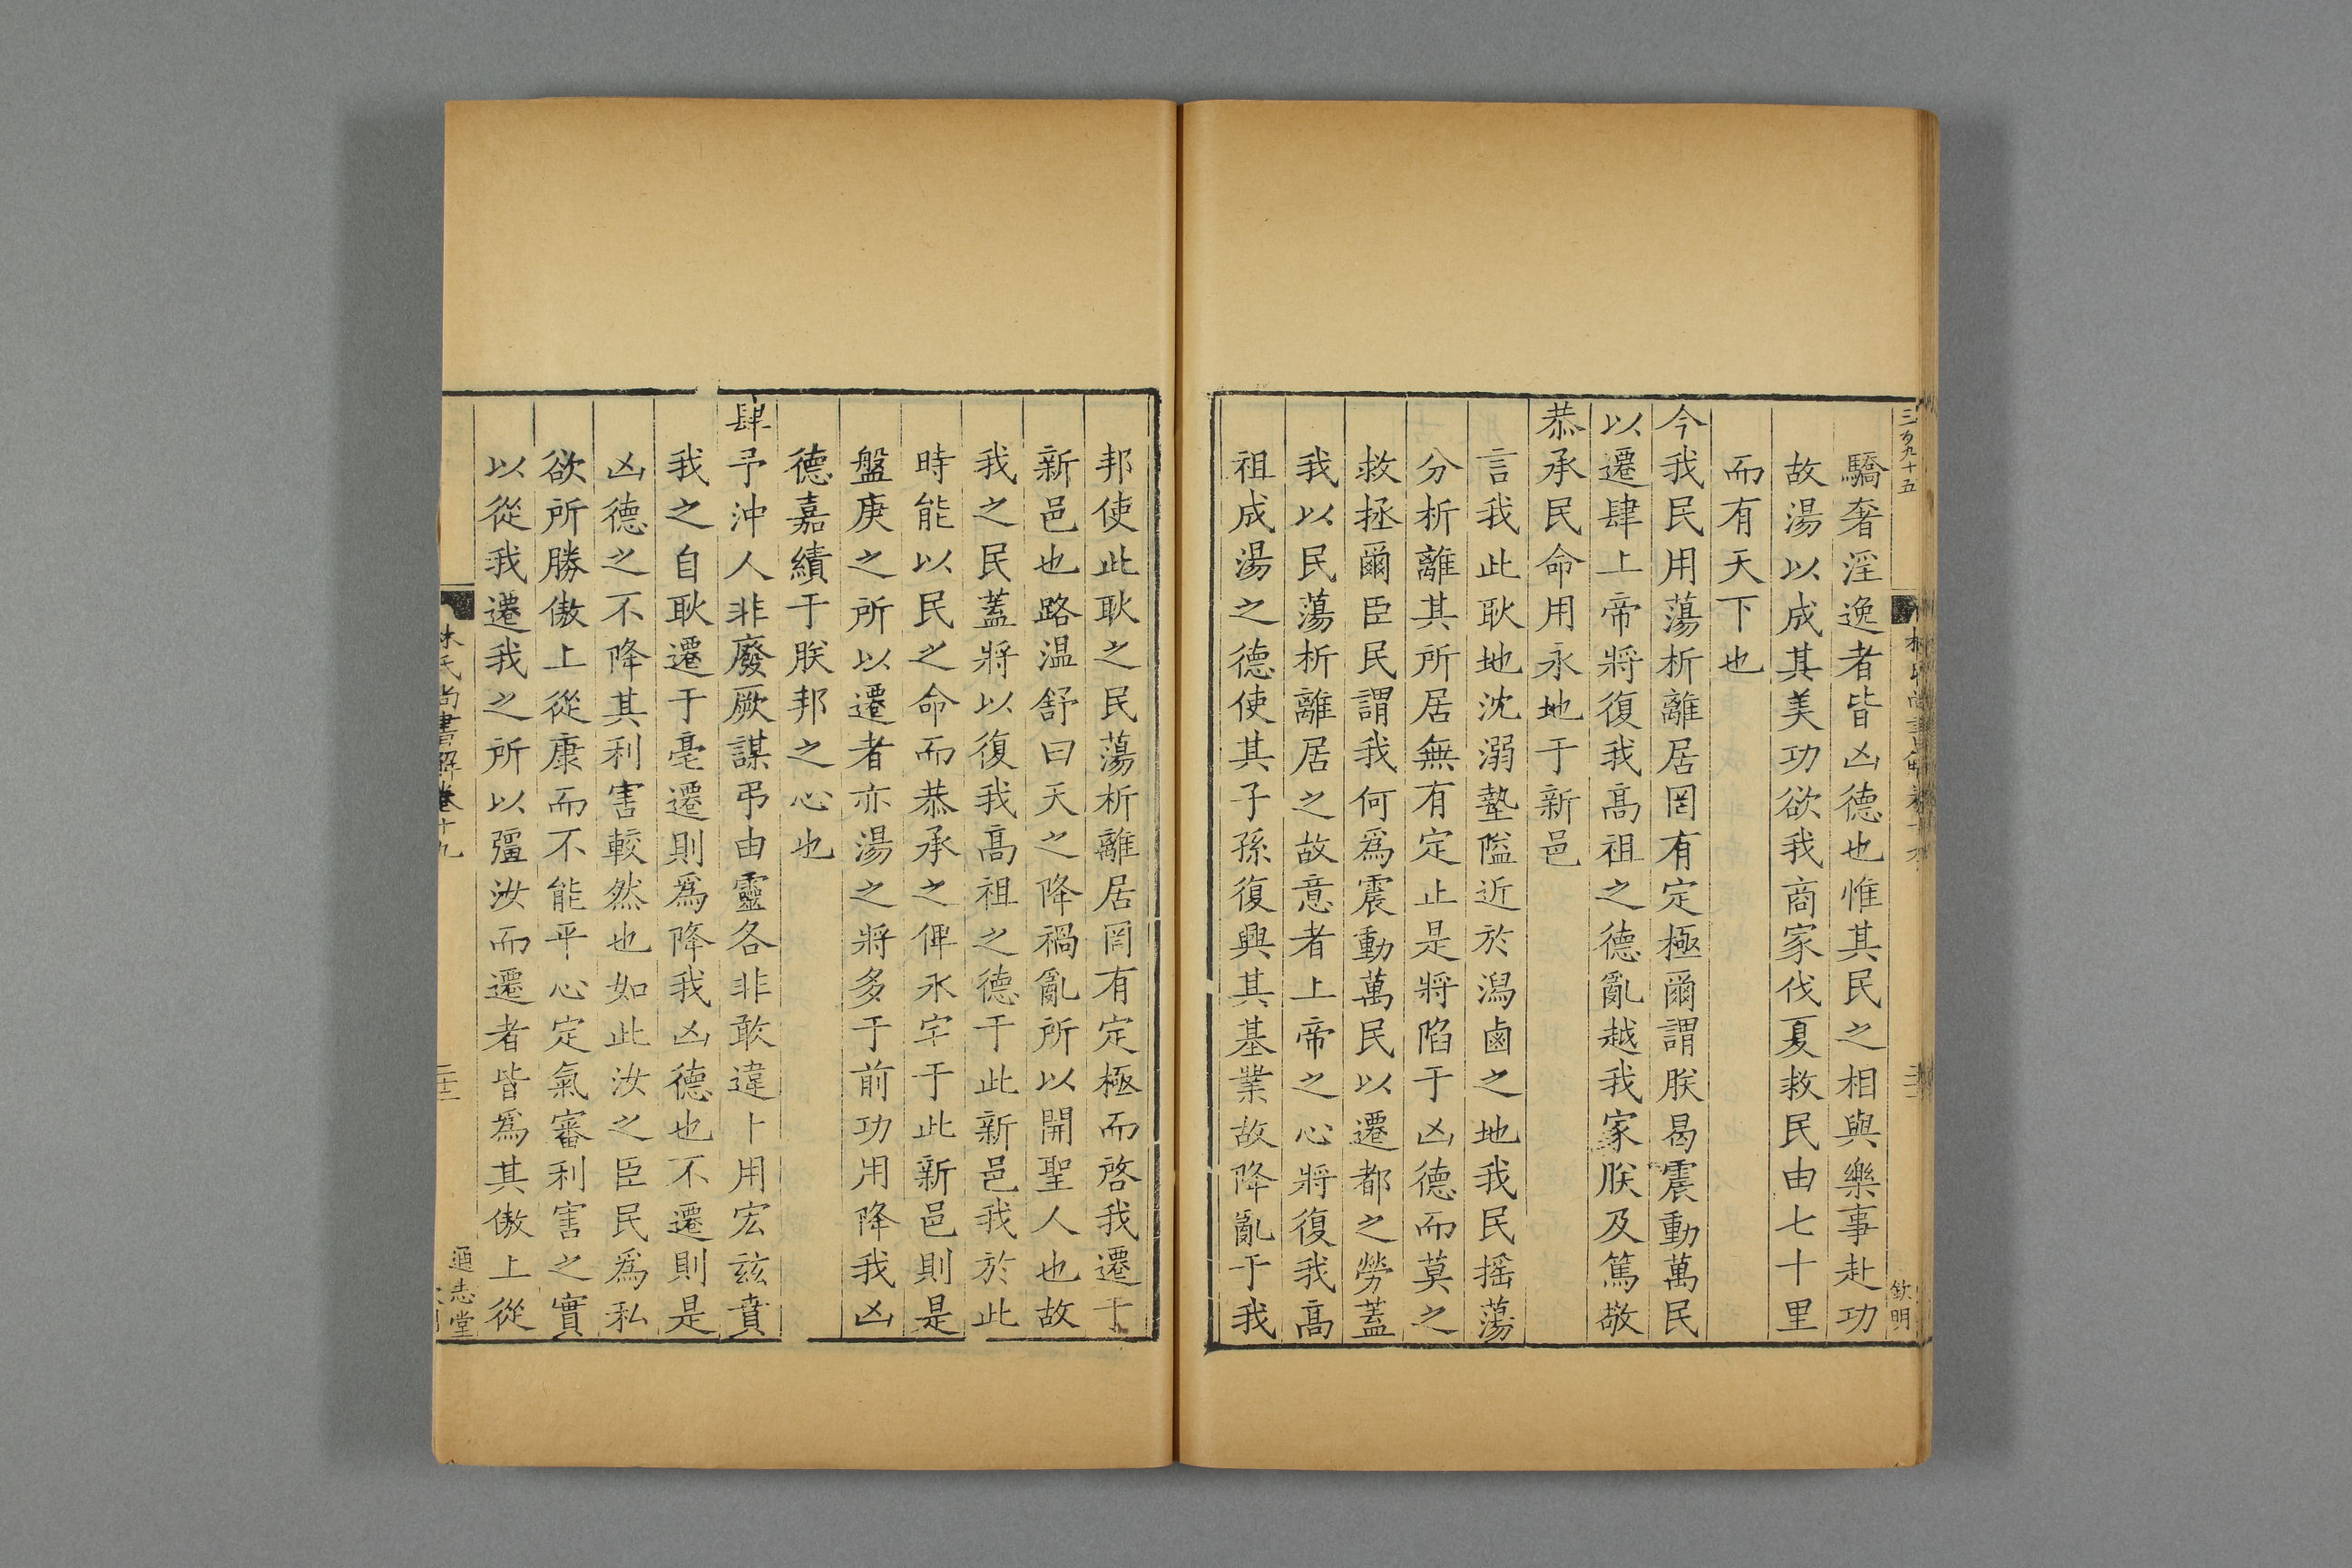 三百九十五
欽明
驕奢淫逸者皆凶德也惟其民之相與樂事赴功
故湯以成其美功欲我商家伐夏救民由七十里
而有天下也
今我民用蕩析離居罔有定極爾謂朕曷震動萬民
以遷肆上帝將復我高祖之德亂越我家朕及篤敬
恭承民命用永地于新邑
言我此耿地沈溺墊隘近於潟鹵之地我民揺蕩
分析離其所居無有定止是將陷于凶德而莫之
救拯爾臣民謂我何爲震動萬民以遷都之勞蓋
我以民蕩析離居之故意者上帝之心將復我高
祖成湯之德使其子孫復興其基業故降亂于我
邦使此耿之民蕩析離居罔有定極而啓我遷于
新邑也路温舒曰天之降禍亂所以開聖人也故
我之民蓋將以復我高祖之德于此新邑我於此
時能以民之命而恭承之俾永宅于此新邑則是
盤庚之所以遷者亦湯之將多于前功用降我凶
德嘉績于朕邦之心也
肆予沖人非廢厥謀弔由靈各非敢違卜用宏玆賁
我之自耿遷于亳遷則爲降我凶德也不遷則是
凶德之不降其利害較然也如此汝之臣民爲私
欲所勝傲上從康而不能平心定氣審利害之實
以從我遷我之所以彊汝而遷者皆爲其傲上從
林氏尚書解卷十九
二十二
通志堂